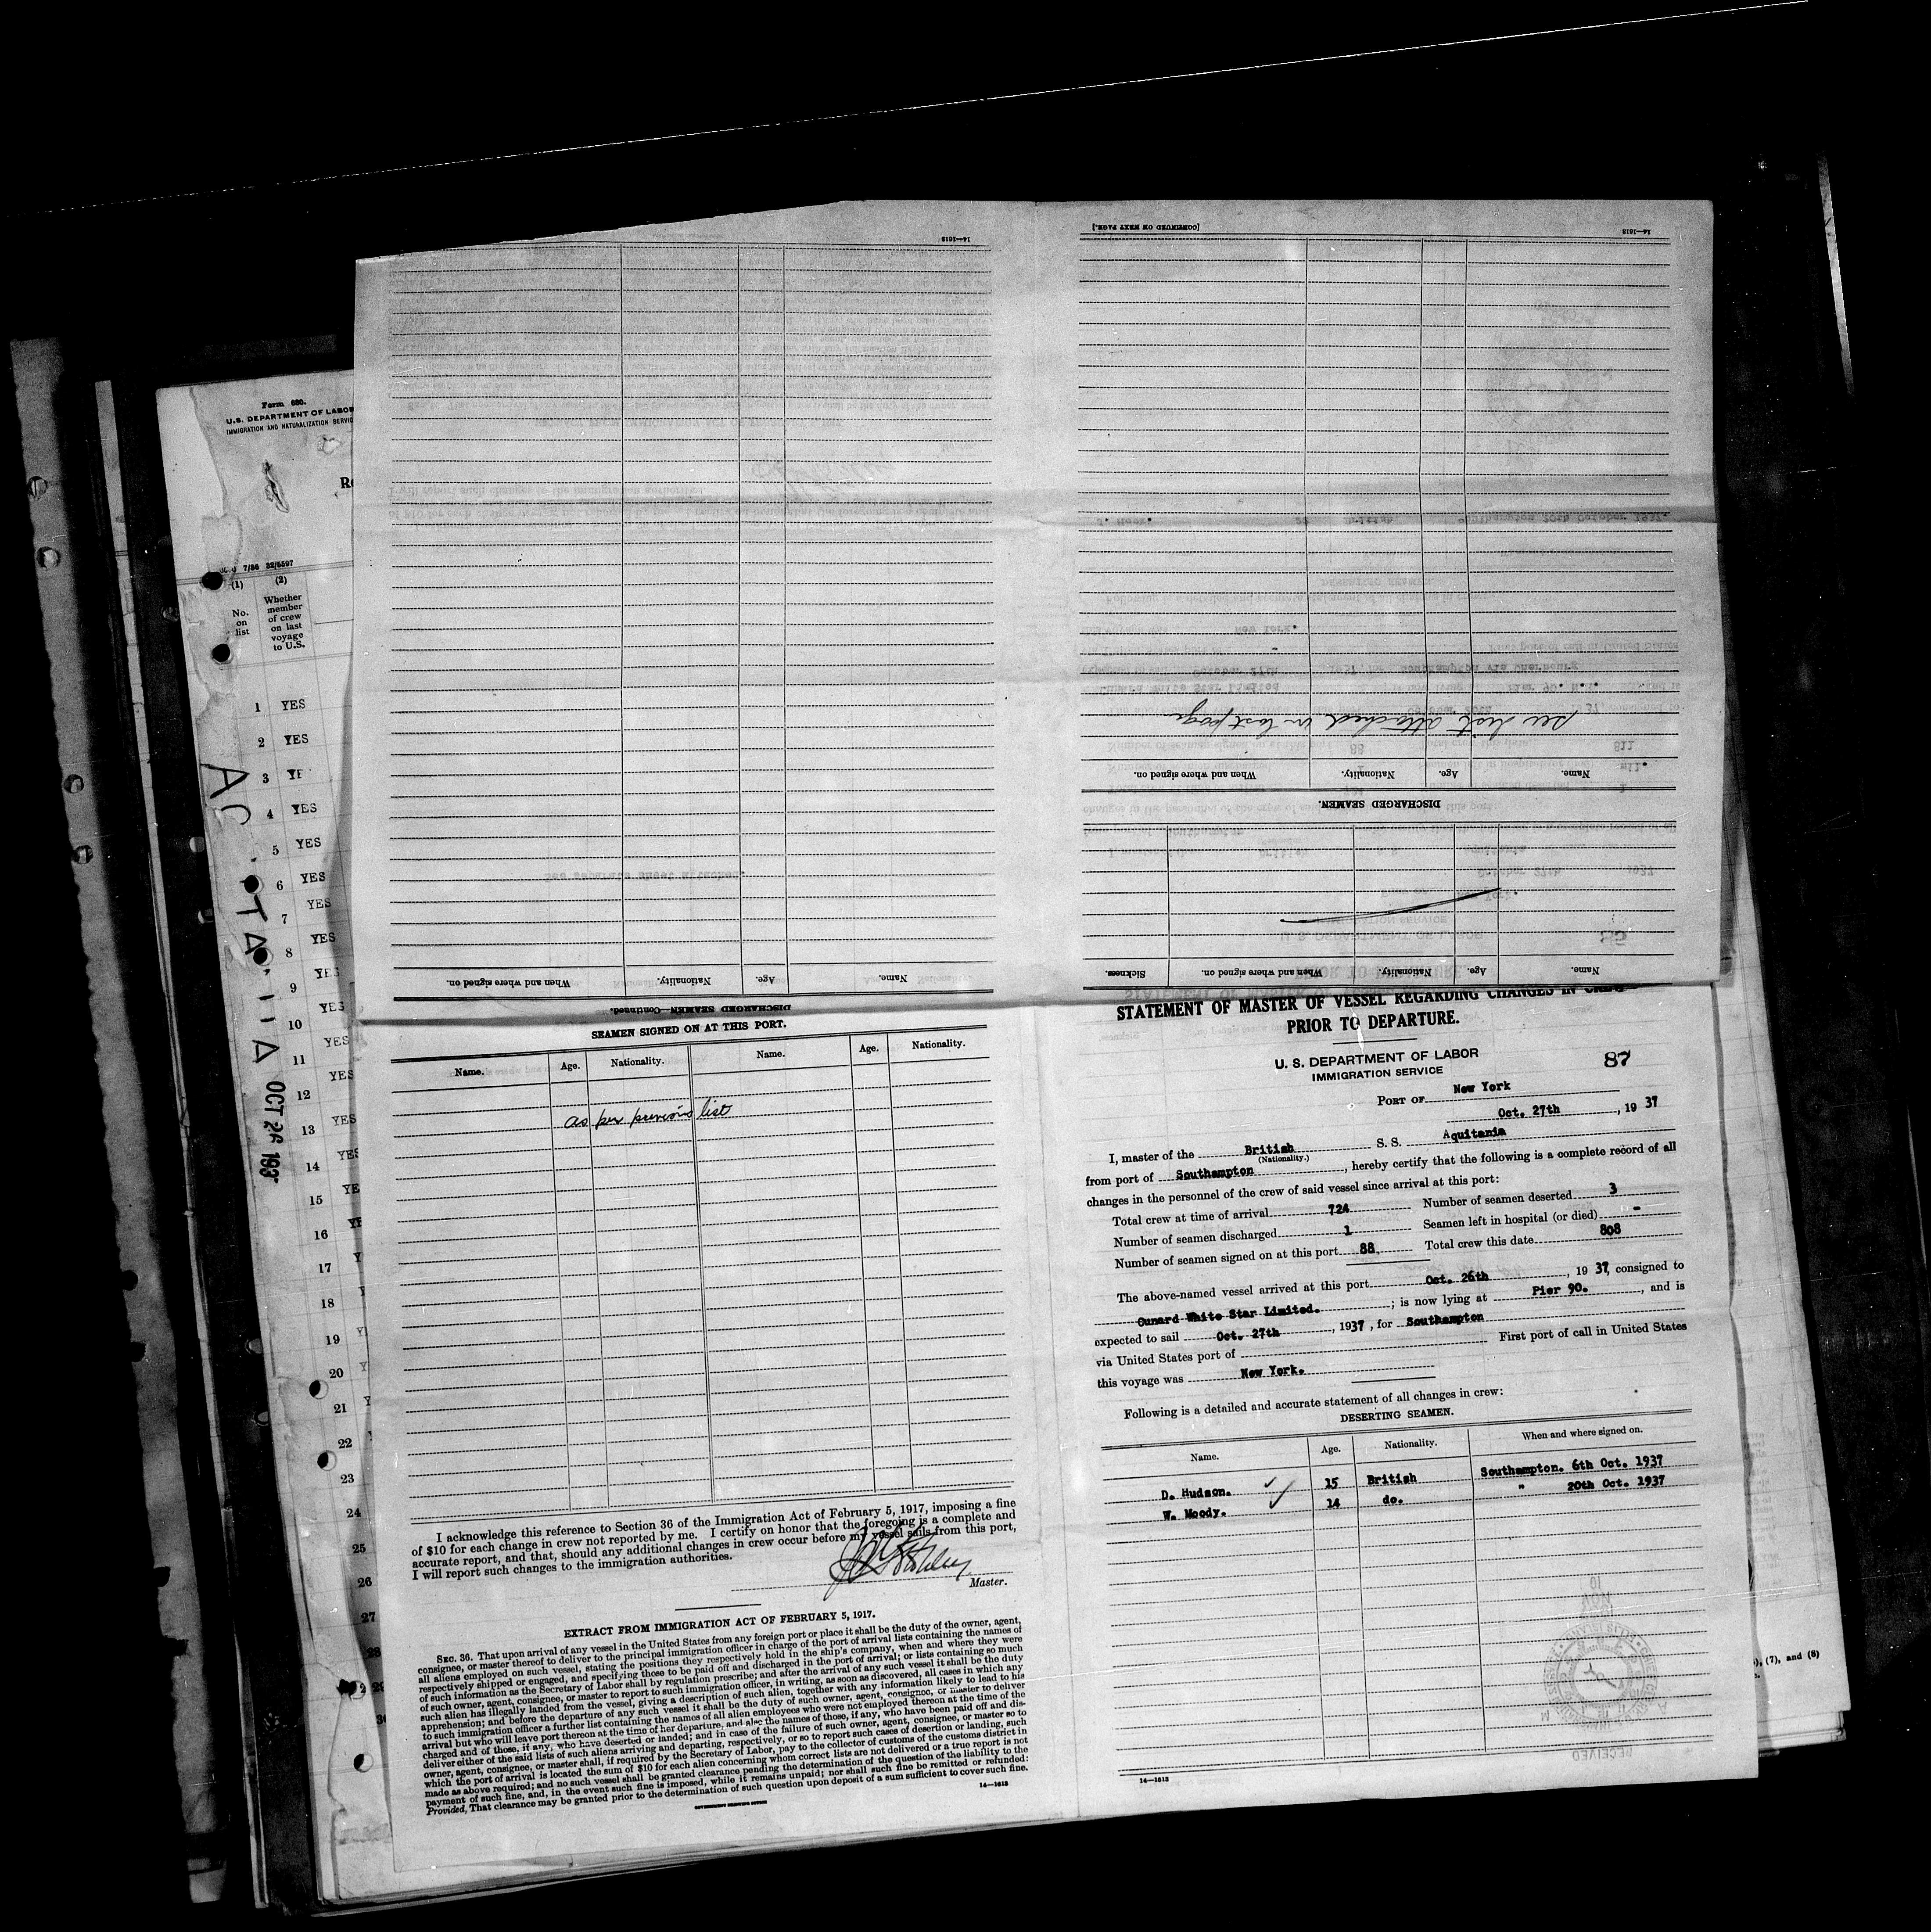 [CONTINUED ON NEXT PAGE.]
14—1613
14—1613
see list attached on last page
Name. Age. Nationality. When and where signed on.
DISCHARGED SEAMEN.
Name. Age. Nationality. When and where signed on. Sickness.
Name. Age. Nationality. When and where signed on.
DISCHARGED SEAMEN—Continued.
Form 680.
U.S. DEPARTMENT OF LABOR
IMMIGRATION AND NATURALIZATION SERVIC
7/36 32/5597
(1) (2)
No. on list
Whether member of crew on last voyage to U.S.
1 YES
2 YES
3 YE
4 YES
5 YES
6 YES
7 YES
8 YES
9 YES
10 YES
11 YES
12 YES
13 YES
14 YES
15 YE
16 YE
17 Y
18
19 Y
20 Y
21 Y
22
23
24
25
26
27
OCT 26 193
SEAMEN SIGNED ON AT THIS PORT.
Name. Age. Nationality. Name. Age. Nationality.
as per previous list
I acknowledge this reference to Section 36 of the Immigration Act of February 5, 1917, imposing a fine
of $10 for each change in crew not reported by me. I certify on honor that the foregoing is a complete and
accurate report, and that, should any additional changes in crew occur before my vessel sails from this port,
I will report such changes to the immigration authorities.
Master.
EXTRACT FROM IMMIGRATION ACT OF FEBRUARY 5, 1917.
SEC. 36. That upon arrival of any vessel in the United States from any foreign port or place it shall be the duty of the owner, agent,
consignee, or master thereof to deliver to the principal immigration officer in charge of the port of arrival lists containing the names of
all aliens employed on such vessel, stating the positions they respectively hold in the ship's company, when and where they were
respectively shipped or engaged, and specifying those to be paid off and discharged in the port of arrival; or lists containing so much
of such information as the Secretary of Labor shall by regulation prescribe; and after the arrival of any such vessel it shall be the duty
of such owner, agent, consignee, or master to report to such immigration officer, in writing, as soon as discovered, all cases in which any
such alien has illegally landed from the vessel, giving a description of such alien, together with any information likely to lead to his
apprehension; and before the departure of any such vessel it shall be the duty of such owner, agent, consignee, or master to deliver
to such immigration officer a further list containing the names of all alien employees who were not employed thereon at the time of the
arrival but who will leave port thereon at the time of her departure, and also the names of those, if any, who have been paid off and dis-
charged and of those, if any, who have deserted or landed; and in case of the failure of such owner, agent, consignee, or master so to
deliver either of the said lists of such aliens arriving and departing, respectively, or so to report such cases of desertion or landing, such
owner, agent, consignee, or master shall, if required by the Secretary of Labor, pay to the collector of customs of the customs district in
which the port of arrival is located the sum of $10 for each alien concerning whom correct lists are not delivered or a true report is not
made as above required; and no such vessel shall be granted clearance pending the determination of the question of the liability to the
payment of such fine, and, in the event such fine is imposed, while it remains unpaid; nor shall such fine be remitted or refunded:
Provided, That clearance may be granted prior to the determination of such question upon deposit of a sum sufficient to cover such fine.
14—1613
GOVERNMENT PRINTING OFFICE
STATEMENT OF MASTER OF VESSEL REGARDING CHANGES IN CREW
PRIOR TO DEPARTURE.
U. S. DEPARTMENT OF LABOR
IMMIGRATION SERVICE
87
PORT OF New York
Oct. 27th, 1937
I, master of the British S. S. Aquitania
(Nationality.)
from port of Southampton, hereby certify that the following is a complete record of all
changes in the personnel of the crew of said vessel since arrival at this port:
Total crew at time of arrival 724 Number of seamen deserted 3
Number of seamen discharged 1 Seamen left in hospital (or died) -
Number of seamen signed on at this port 88. Total crew this date 808
The above-named vessel arrived at this port Oct. 26th, 1937, consigned to
Cunard White Star Limited. ; is now lying at Pier 90. , and is
expected to sail Oct. 27th, 1937, for Southampton
via United States port of First port of call in United States
this voyage was New York.
Following is a detailed and accurate statement of all changes in crew:
DESERTING SEAMEN.
Name. Age. Nationality. When and where signed on.
D. Hudson. 15 British Southampton. 6th Oct. 1937
W. Moody. 14 do. " 20th Oct. 1937
14—1613
RECEIVED
, (7), and (8)